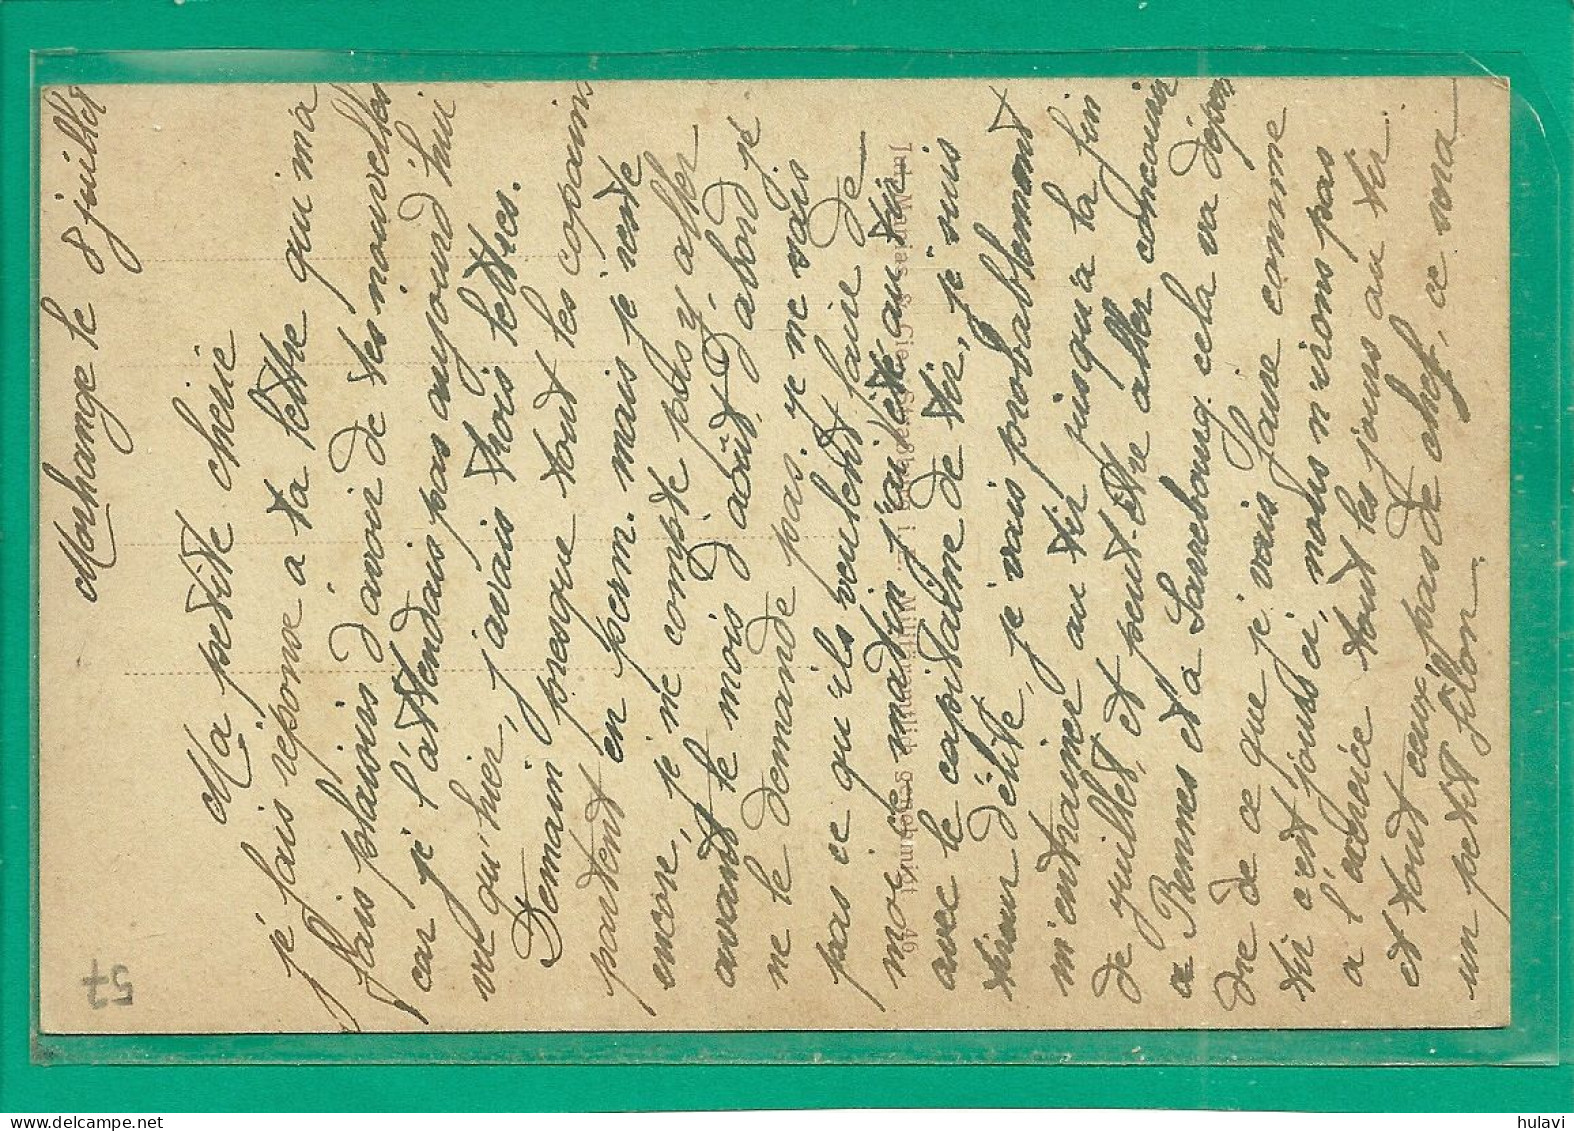 Morhange le 8 juillet
Ma petite cherie
je fais reponse a ta lettre qui m'a
fais plaisirs d'avoir de tes nouvelles
car je l'attendais pas aujourd'hui
vue qu'hier, j'avais trois lettres.
Demain presque tout les copains
partent en perm. mais je reste
encore, je ne compte pas y aller
avant le mois d'août, d'abord je
ne le demande pas. je ne sais
pas ce qu'ils veulent faire de
moi ce matin j'ai été au tir
avec le capitaine de tir, je suis
tireur d'élite, je vais probablement
m'entrainer au tir jusqu'a la fin
de juillet, et peut-être aller concourir
a Rennes et a Sarrebourg cela va dépen
dre de ce que je vais faire comme
tir c'est jouss ci, nous n'irons pas
a l'exercice tout les jours au tir
et tout ceux pas de chef, ce sera
un petit filon.
Jul. Manias & Cie., Strasbourg i. Mulhouse 46
57
hulavi